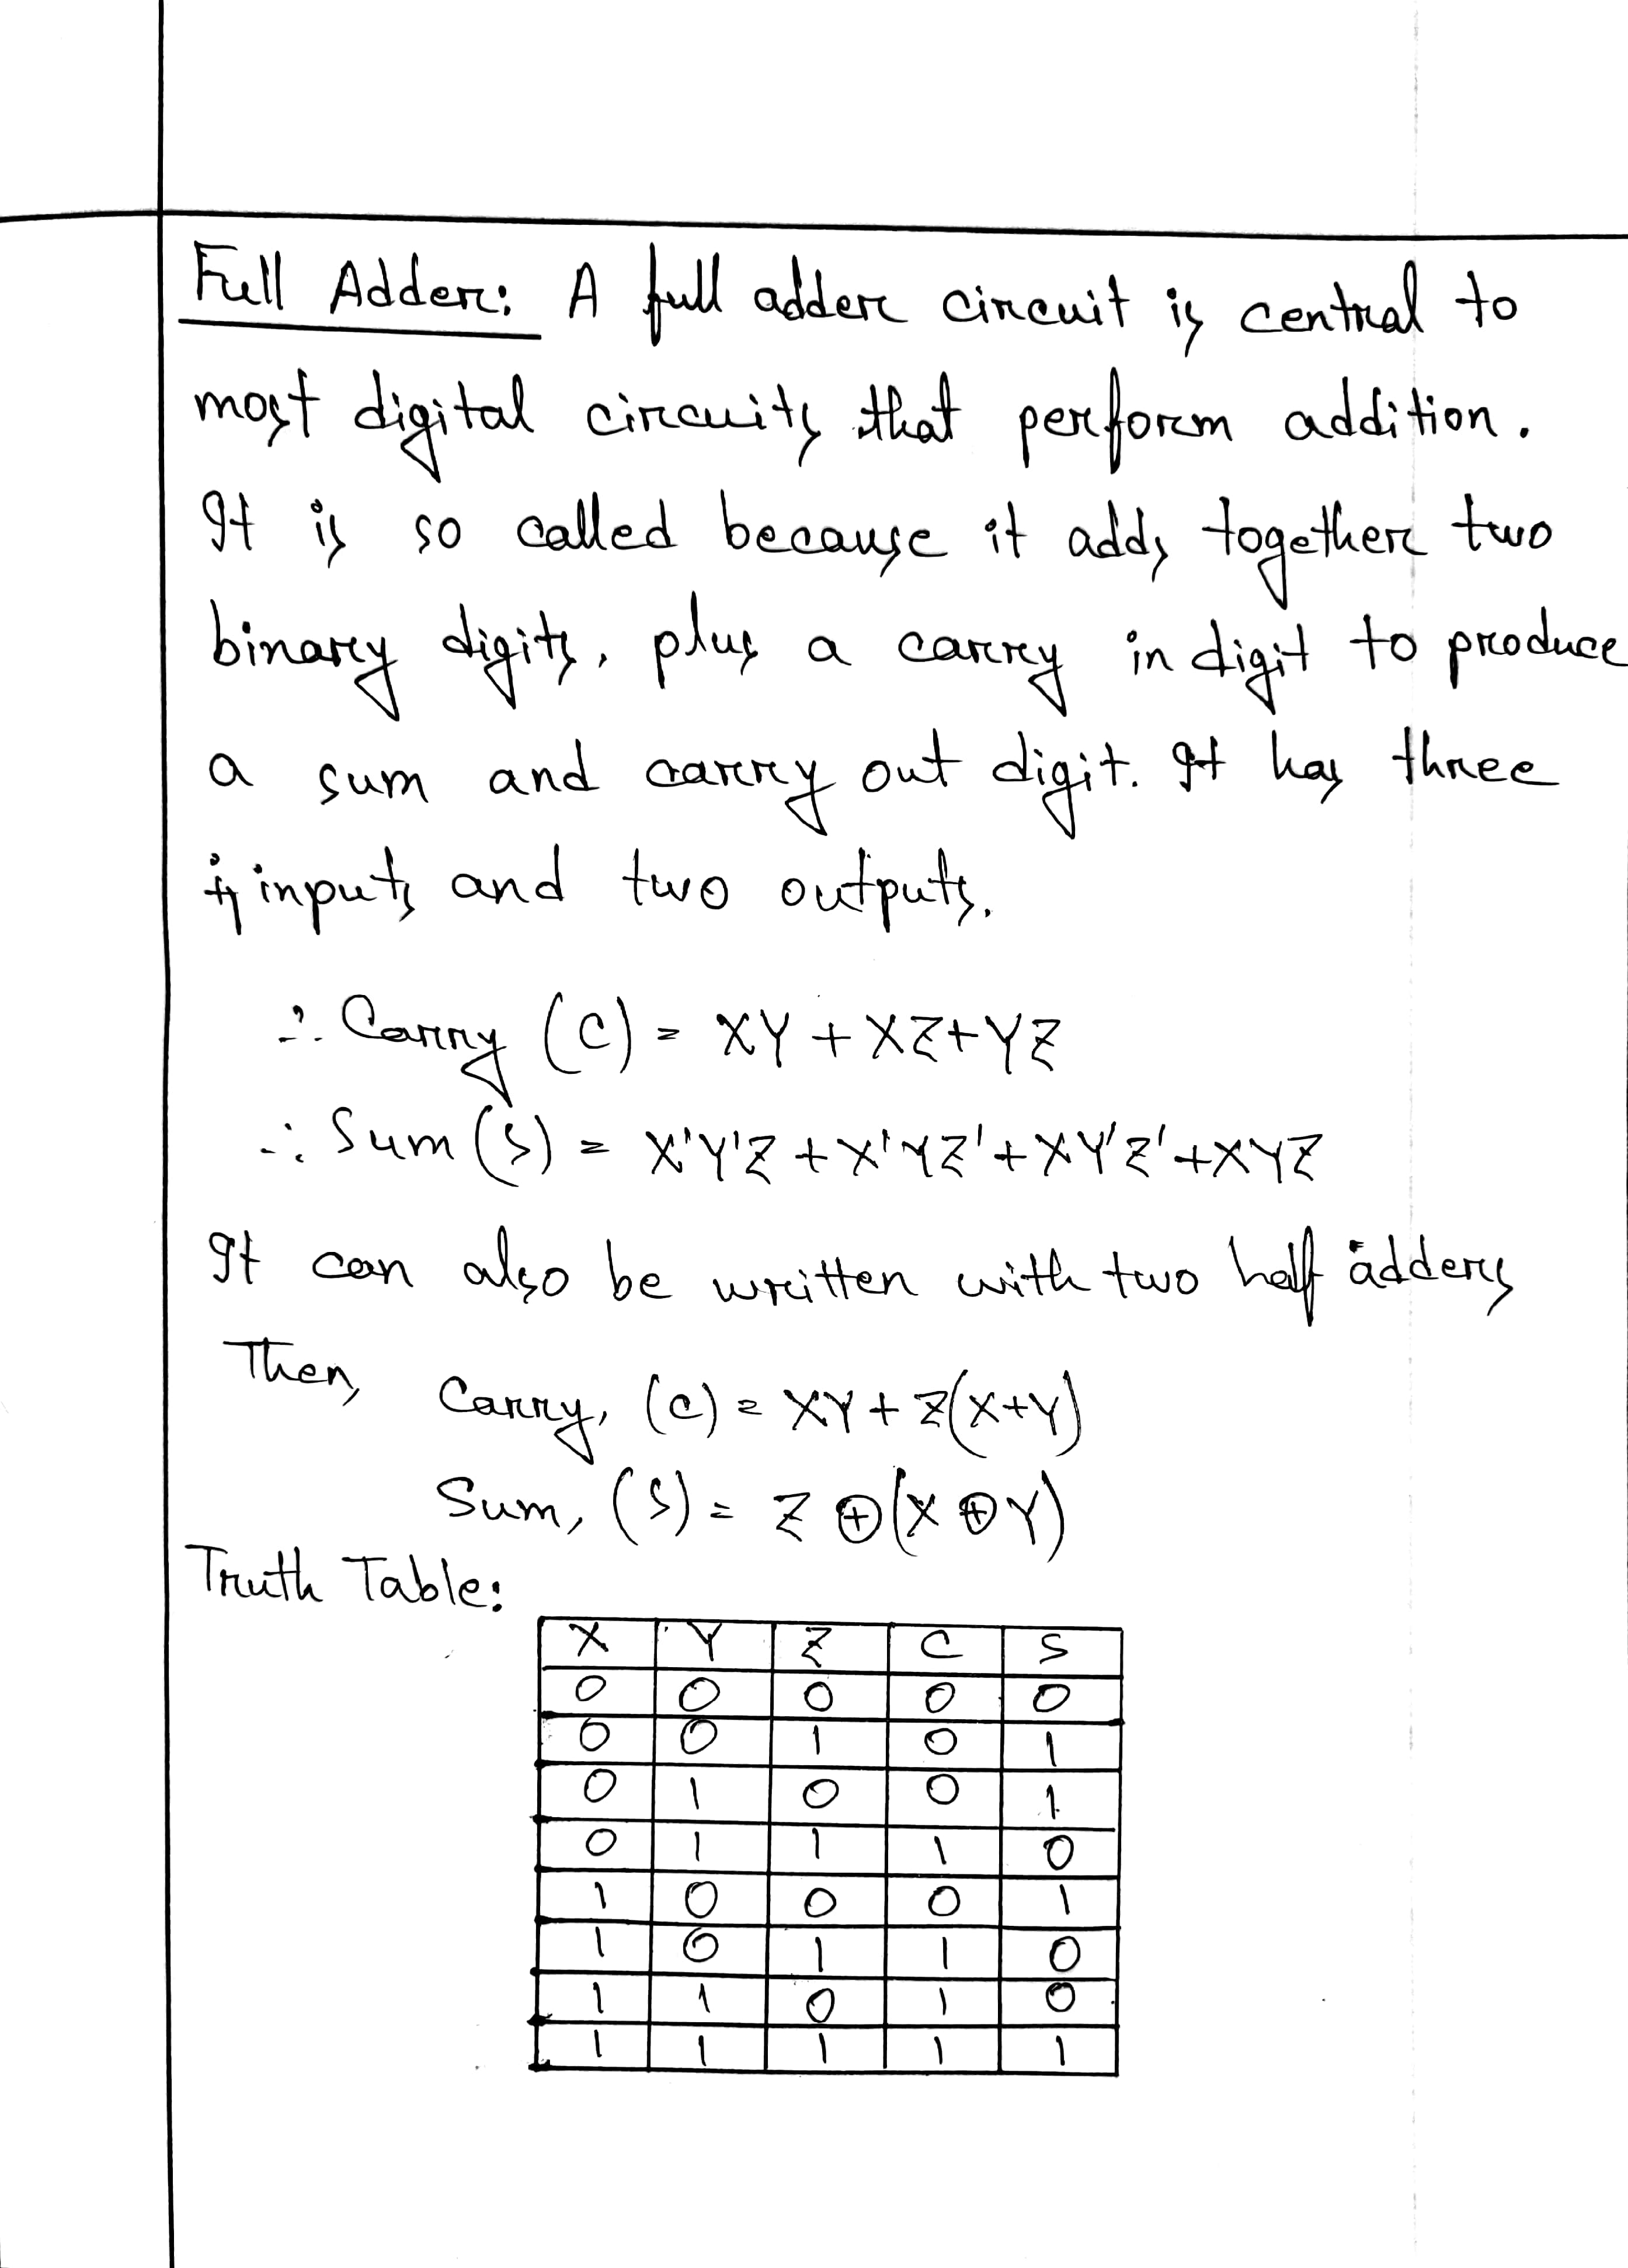 Full Adder: A full adder circuit is central to
most digital circuits that perform addition.
It is so called because it adds together two
binary digits, plus a carry in digit to produce
a sum and carry out digit. It has three
inputs and two outputs.
∴ Carry (C) = XY + XZ + YZ
∴ Sum (S) = X'Y'Z + X'YZ' + XY'Z' + XYZ
It can also be written with two half adders
Then, Carry, (C) = XY + Z(X+Y)
Sum, (S) = Z ⊕ (X ⊕ Y)
Truth Table:
X Y Z C S
0 0 0 0 0
0 0 1 0 1
0 1 0 0 1
0 1 1 1 0
1 0 0 0 1
1 0 1 1 0
1 1 0 1 0
1 1 1 1 1